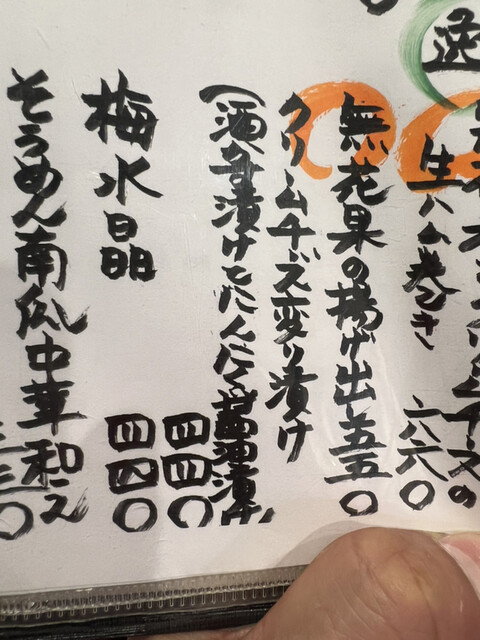 逸
チーズの
生ハム巻き 六六〇
無花果の揚げ出し 五五〇
クリームチーズ変り漬け
(酒盗漬けとにんにく醤油漬け) 四四〇
梅水晶 四四〇
そうめん南瓜中華和え 三三〇